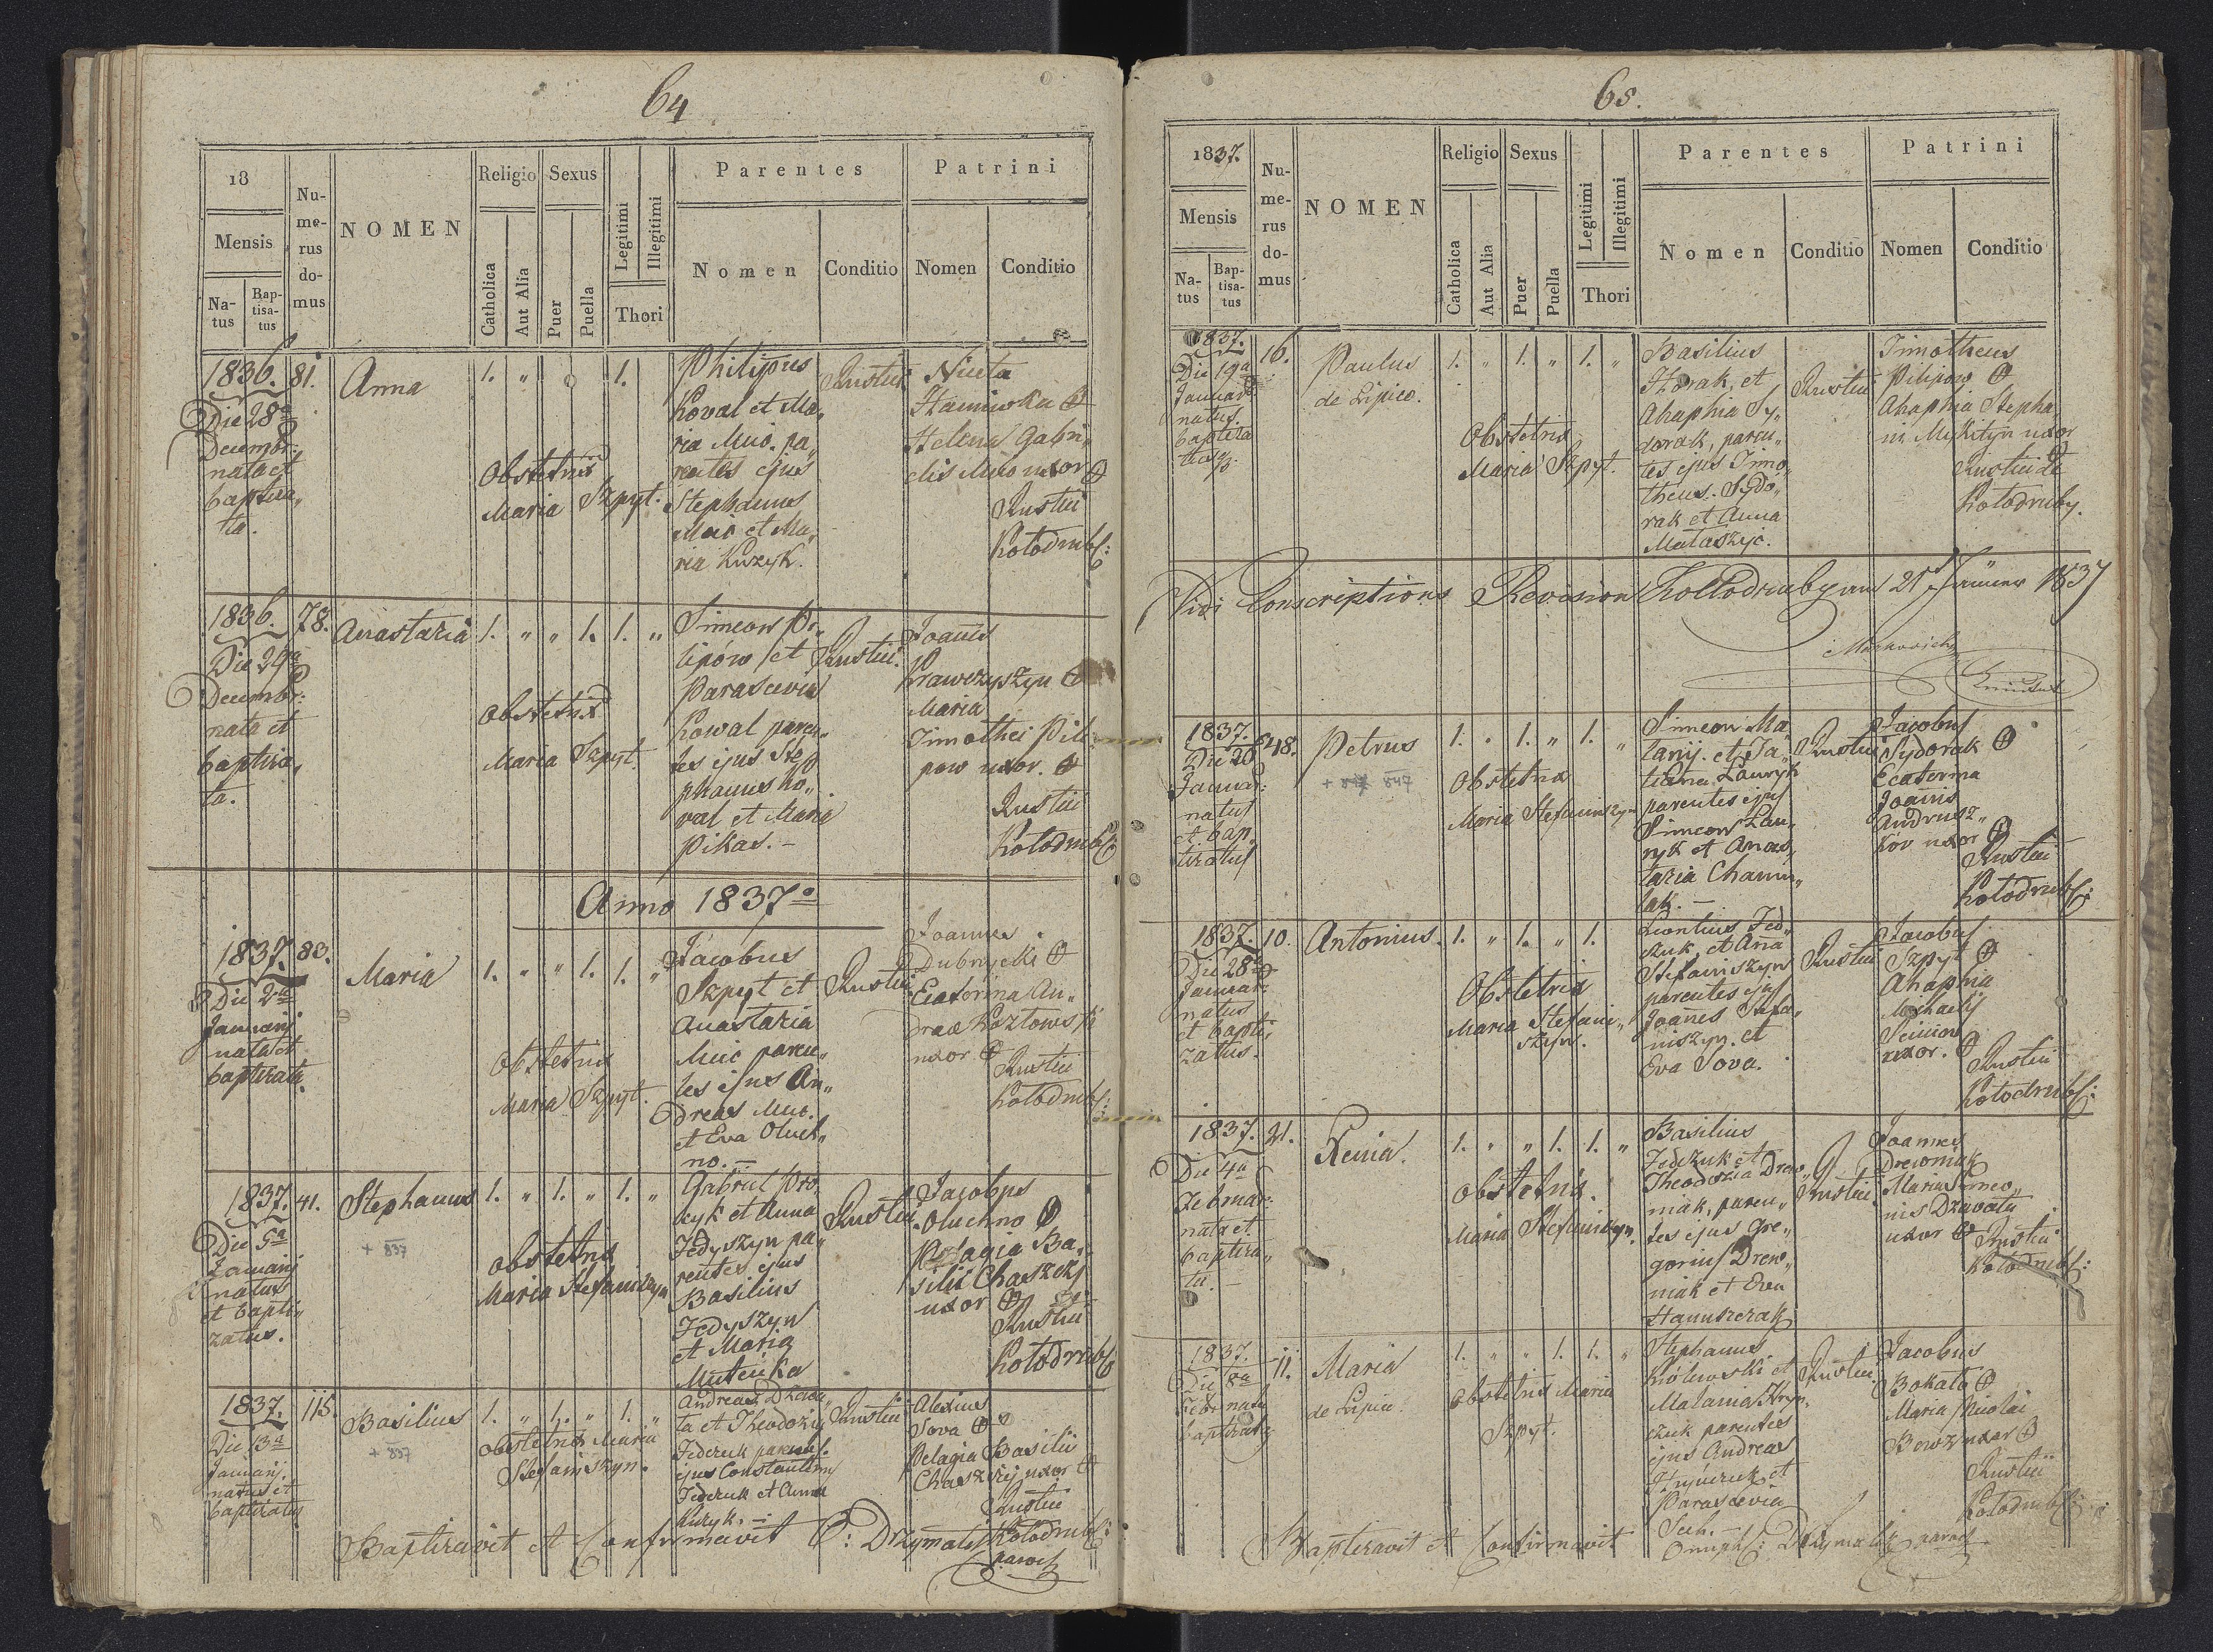 64
18
Mensis
Na-
tus
Bap-
tisa-
tus
Nu-
me-
rus
do-
mus
NOMEN
Religio
Catholica
Aut Alia
Sexus
Puer
Puella
Legitimi
Illegitimi
Thori
Parentes
Nomen
Conditio
Patrini
Nomen
Conditio
1836. 81.
Die 28a
Decembr:
nata et
baptiza„
ta.
Anna
1. „ 1.
Obstetrix
Maria Szpyt.
Philipus
Koval et Ma„
ria Muc. pa„
rentes ejus
Stephanus
Muc et Ma„
ria Kuzyk.
Rustici
Niceta
Helena Gabri„
elis Muc uxor
Rustici
Kołodrub:
1836. 78.
Die 29a
Decembr:
nata et
baptiza„
ta.
Anastazia
1. „ „ 1. 1. „
Obstetrix
Maria Szpyt.
Simeon Pi„
lipów et
Parascevia
Kowal paren„
tes ejus Ste„
phanus Ko„
val et Maria
Pikas. –
Rustici.
Joanes
Krawczyszyn
Maria
Timothei Pili„
pow uxor.
Rustici
Kołodrub:
Anno 1837o
1837. 83.
Die 2a
Januarij
nata et
baptizata.
Maria
1. „ „ 1. 1. „
Obstetrix
Maria Szpyt.
Jacobus
Szpyt et
Anastazia
Muc paren„
tes ejus An„
dreas Muc.
et Eva Oluch„
no. –
Rustici
Joannes
Dubnycki
Ecaterina An„
dreae Kozłowski
uxor
Rustici
Kołodrub:
1837. 41.
Die 5a
Januarij
natus
et bapti„
zatus.
Stephanus
+ 837
1. „ 1. „ 1. „
Obstetrix
Maria Stefaniszyn
Gabriel Pro„
cyk et Anna
Fedyszyn pa„
rentes ejus
Basilius
Fedyszyn
et Maria
Rustici.
Jacobus
Oluchno
Pelagia Ba„
silii Chaszczij
uxor
Rustici
Kołodrub:
1837. 115.
Die 13a
Januarij.
natus et
baptizatus
Basilius
+ 837
1. „ 1. „ 1. „
Obstetrix Maria
Stefaniszyn.
Andreas Dzava„
ta et Theodozia
Fedczuk parentes.
ejus Constantinus
Fedczuk et Anna
Kuzyk. –
Rustici
Alexius
Sova
Pelagia Basilii
Chaszczij uxor
Rustici
Kołodrub:
Baptizavit et Confirmavit O: Drzymalik
paroch
65.
1837.
Mensis
Na-
tus
Bap-
tisa-
tus
Nu-
me-
rus
do-
mus
NOMEN
Religio
Catholica
Aut Alia
Sexus
Puer
Puella
Legitimi
Illegitimi
Thori
Parentes
Nomen
Conditio
Patrini
Nomen
Conditio
1837. 16.
Die 19a
Januar
natus.
baptiza
tus
Paulus
de Lipice.
1. „ 1. „ 1. „
Obstetrix
Maria Szpyt.
Basilius
Horak, et
Ahaphia Sy„
dorak, paren„
tes ejus Timo„
theus Sydo„
rak et Anna
Mataszyc.
Rustici
Timotheus
Pilipow
Ahaphia Stepha„
ni Mykityn uxor
Rustici de
Kołodruby.
Vidi Conscriptions Revision Kollodruby am 21 Jänner 1837
1837. 48.
Die 28
Januar:
natus
et bap„
tizatus
Petrus
+ 847
1. „ 1. „ 1. „
Obstetrix
Maria Stefaniszyn
Simeon Ma„
lanij. et Ta„
tiana Lawryk
parentes ejus
Simeon Law„
ryk et Anas„
tazia Cham„
lak. –
Rustici
Jacobus
Sydorak
Ecaterina
Joannis
Andrusz„
kov uxor
Rustici
Kołodrub:
1837. 10.
Die 28a
Januar:
natus
et bapti„
zatus.
Antonius.
1. „ 1. „ 1.
Obstetrix
Maria Stefani„
szyn.
Leontius Fed„
czuk, et Anna
Stefaniszyn
parentes ejus
Joannes Stefa„
niszyn. et
Eva Sova.
Rustici
Jacobus
Szpyt
Ahaphia
Michaelis
Semion
uxor.
Rustici
Kołodrub:
1837. 21.
Die 4a
Februar:
nata et
baptiza„
ta. –
Xenia.
1. „ „ 1. 1. „
Obstetrix.
Maria Stefaniszyn.
Basilius
Fedczuk et
Theodozia Drew„
niak, paren„
tes ejus Gre„
gorius Drew„
niak et Eva
Hanuszczak
Rustici
Joannes
Drewniak
Maria Simeo„
nis Dzavata
uxor
Rustici
Kołodrub:
1837. 11.
Die 8a
Febr nata
baptizata
Maria
de Lipice.
1. „ „ 1. 1. „
Obstetrix Maria
Szpyt.
Stephanus
Królewski et
Malania Hryn„
czuk parentes
ejus Andreas
Hrynczuk et
Parascevia
Seeh. –
Rustici
Jacobus
Bokalo
Maria Nicolai
uxor
Rustici
Kołodrub:
Baptizavit et Confirmavit Onuph: Drzymalik paroch